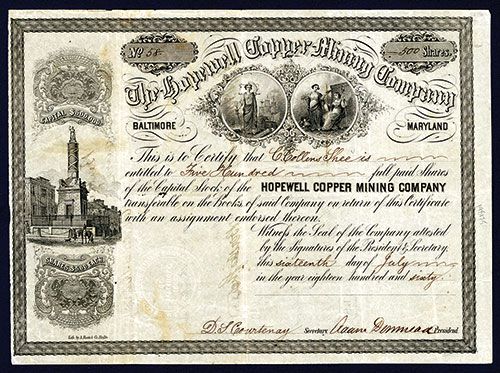 No 58
500 Shares.
The Hopewell Copper Mining Company
BALTIMORE
MARYLAND
CAPITAL
This is to Certify that C Collins Shee is
entitled to Five Hundred full paid Shares
of the Capital Stock of the HOPEWELL COPPER MINING COMPANY
transferable on the Books of said Company on return of this Certificate
with an assignment endorsed thereon.
Witness the Seal of the Company attested
by the Signatures of the President & Secretary,
this sixteenth day of July
in the year eighteen hundred and sixty
D. S. Courtenay Secretary Adam Denmead President